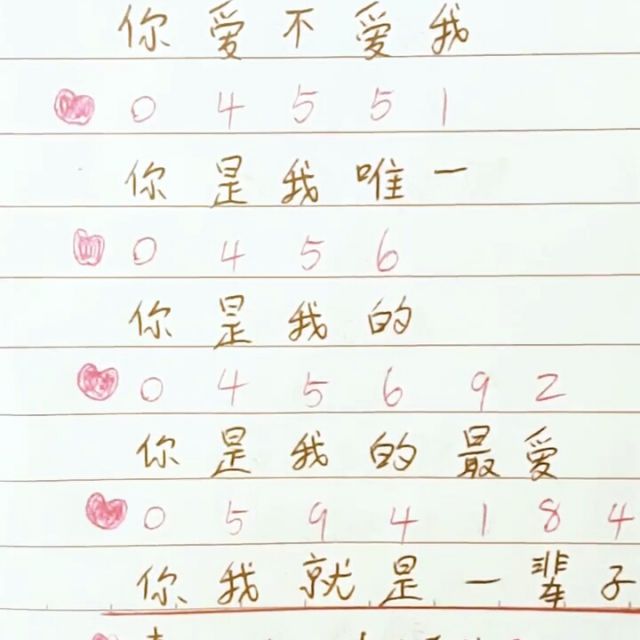 你爱不爱我
0 4 5 5 1
你是我唯一
0 4 5 6
你是我的
0 4 5 6 9 2
你是我的最爱
0 5 9 4 1 8 4
你我就是一辈子